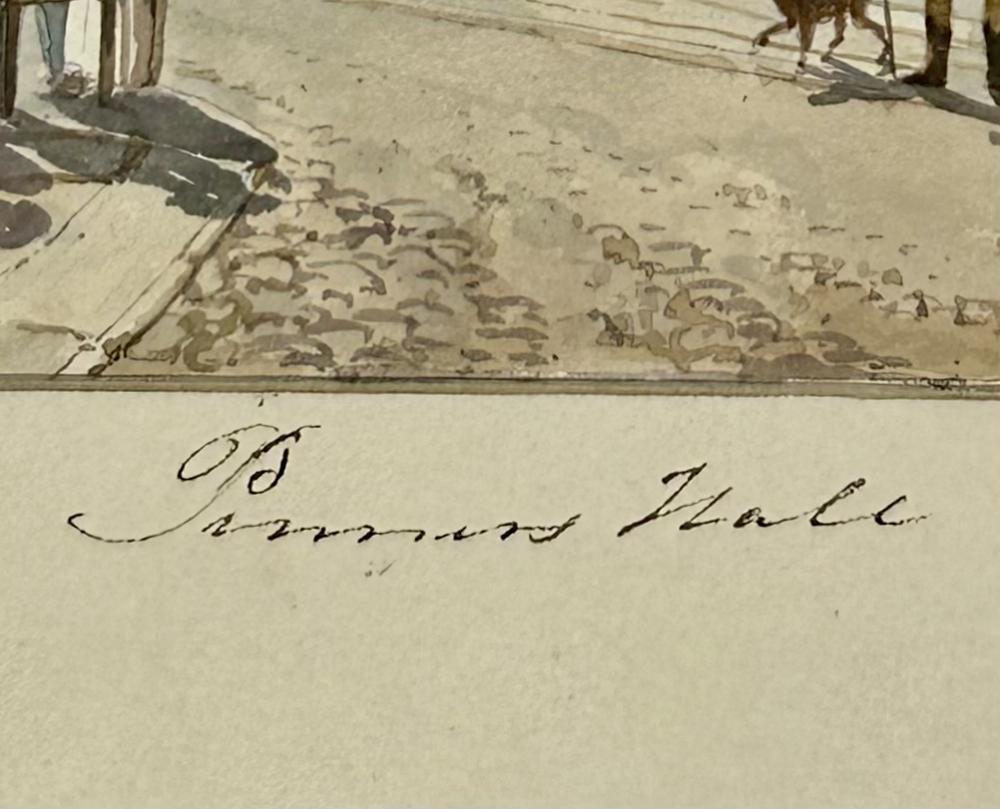 Pinners Hall